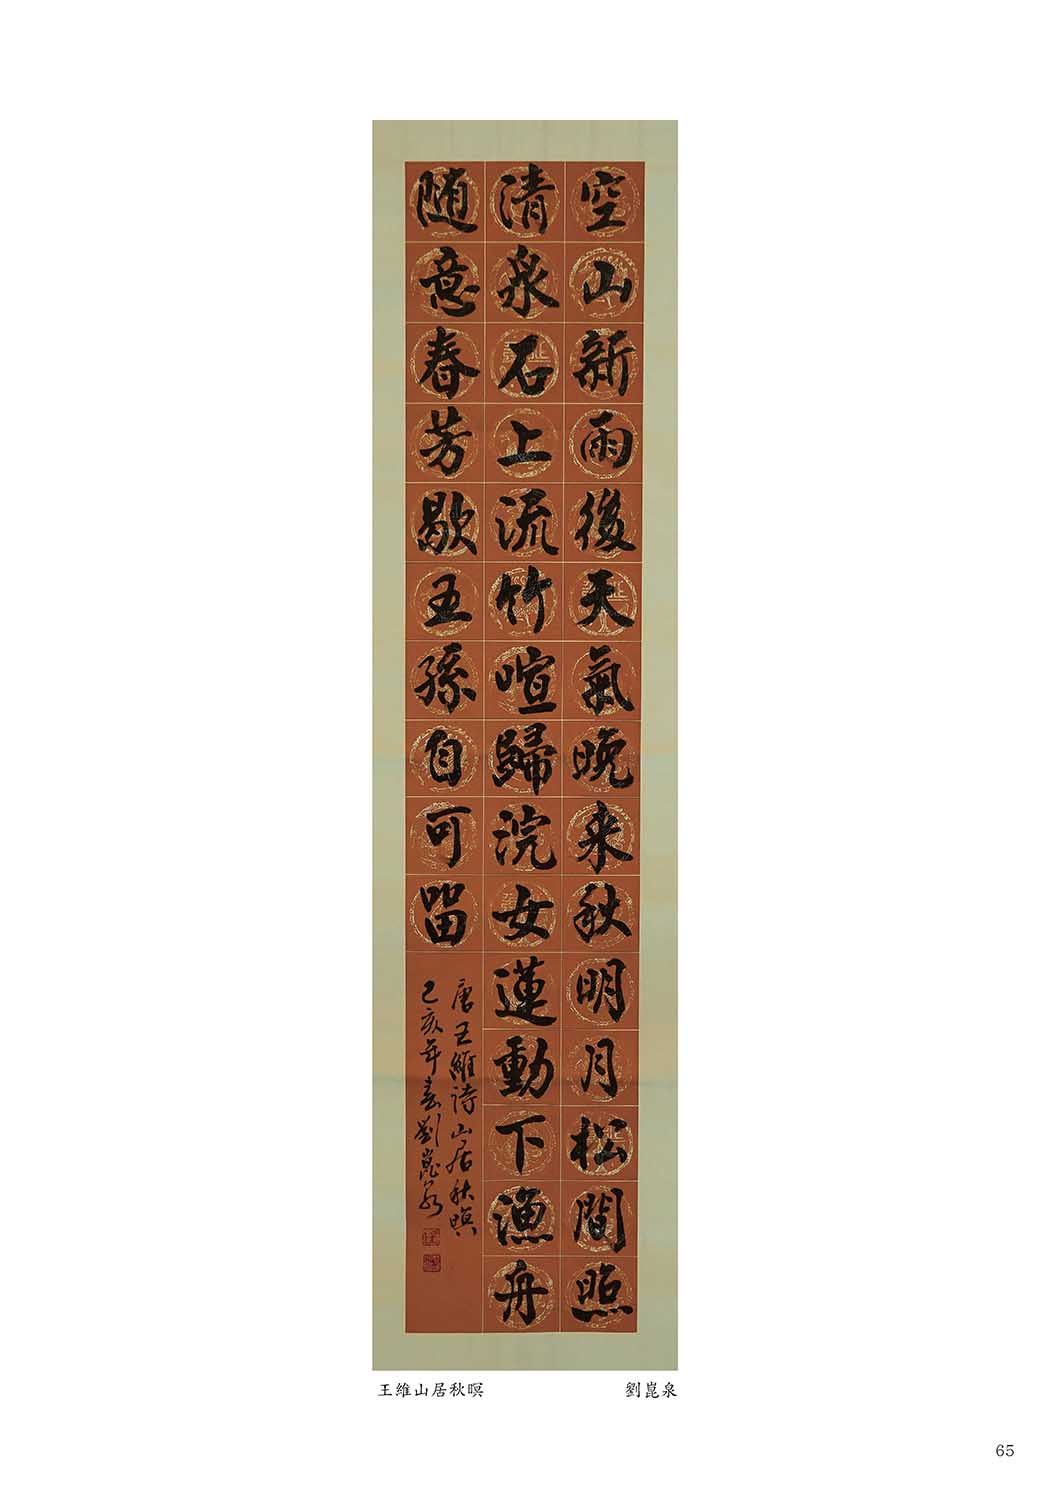 空山新雨後天氣晚来秋明月松間照
清泉石上流竹喧歸浣女蓮動下漁舟
随意春芳歇王孫自可留
唐王維詩山居秋暝
己亥年春劉崑泉
王維山居秋暝
劉崑泉
65